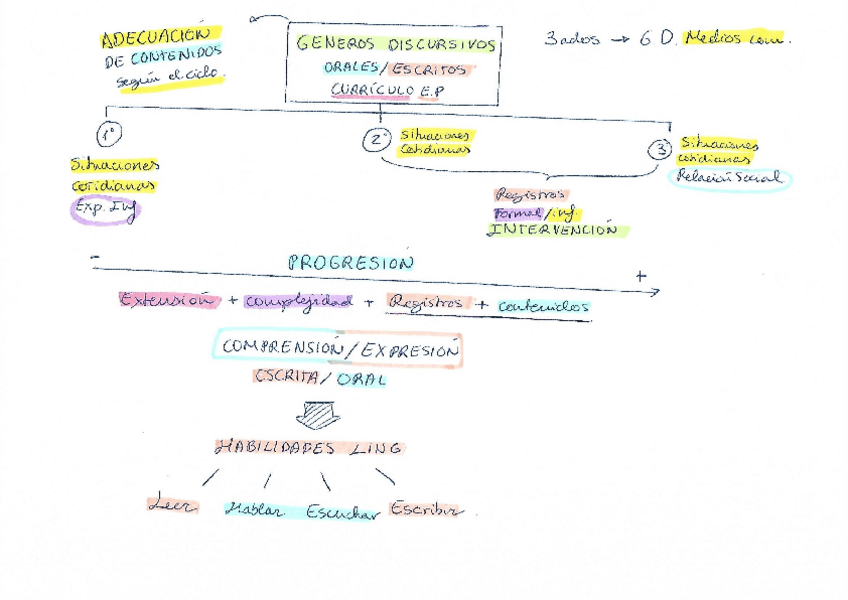 ADECUACIÓN
DE CONTENIDOS
según el ciclo.
GENEROS DISCURSIVOS
ORALES/ESCRITOS
CURRÍCULO E.P
→ 6 D. Medios com.
1º
Situaciones
cotidianas
Exp. Inf
2º
Situaciones
cotidianas
3º
Situaciones
cotidianas
Relación Social
Registros
Formal/inf.
INTERVENCIÓN
- PROGRESIÓN +
Extensión + complejidad + Registros + contenidos
COMPRENSIÓN/EXPRESIÓN
ESCRITA/ORAL
HABILIDADES LING
Leer Hablar Escuchar Escribir